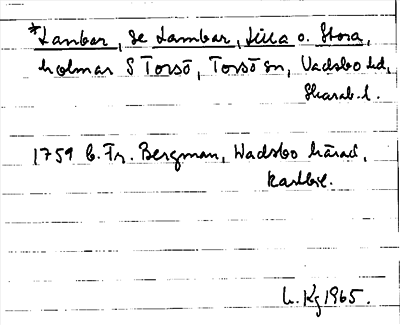 *Lambar, se Lambar, Lilla o. Stora,
holmar S Torsö, Torsö sn, Vadsbo hd,
Skarab. l.
1759 C. Fr. Bergman, Wadsbo härad,
kartbl.
L. Kg 1965.